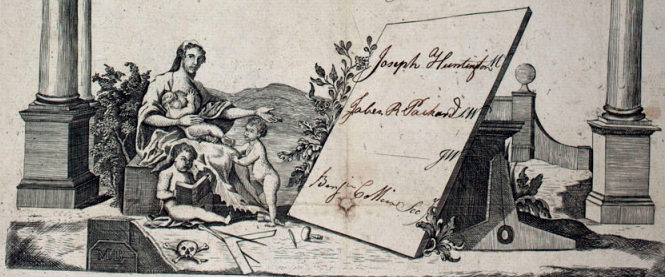 Joseph Huntington M
Jabez R Packard SW
JW
Benjn Collins Sec